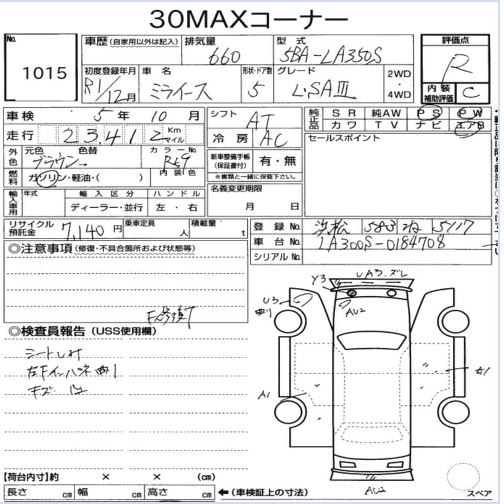 30MAXコーナー
No. 1015
車歴 (自家用以外は記入)
排気量 660
型式 5BA-LA350S
評価点 R
内装補助評価 C
初度登録年月 R1/12月
車名 ミライース
形状・ドア数 5
グレード L・SAⅢ
2WD・4WD
車検 5年10月
シフト AT
純正品 SR 純AW PS PW
カワ TV ナビ エアB
走行 23,412 Km マイル
冷房 AC
セールスポイント
外色 元色 ブラウン 色替 カラーNo. R59
内装色
燃料 ガソリン・軽油・( )
新車整備手帳(保証書付) 有・無
※書類と一緒に保管下さい。
輸入車用 年式 輸入区分 ハンドル
ディーラー・並行 左・右
名義変更期限
月 日
リサイクル預託金 7,140円
乗車定員 人
積載量 t
登録No. 浜松 583 ね 5717
車台No. LA300S-0184708
シリアルNo.
◎注意事項 (修復・不具合箇所および状態等)
◎検査員報告 (USS使用欄)
シート
左Fインパネ曲り
キズ 凹
Y3
UA3.ズレ
U3
曲り
AU2
A1
AU2
【荷台内寸】約 × × (cm)
長さ cm 幅 cm 高さ cm ←(車検証上の寸法)
スペア